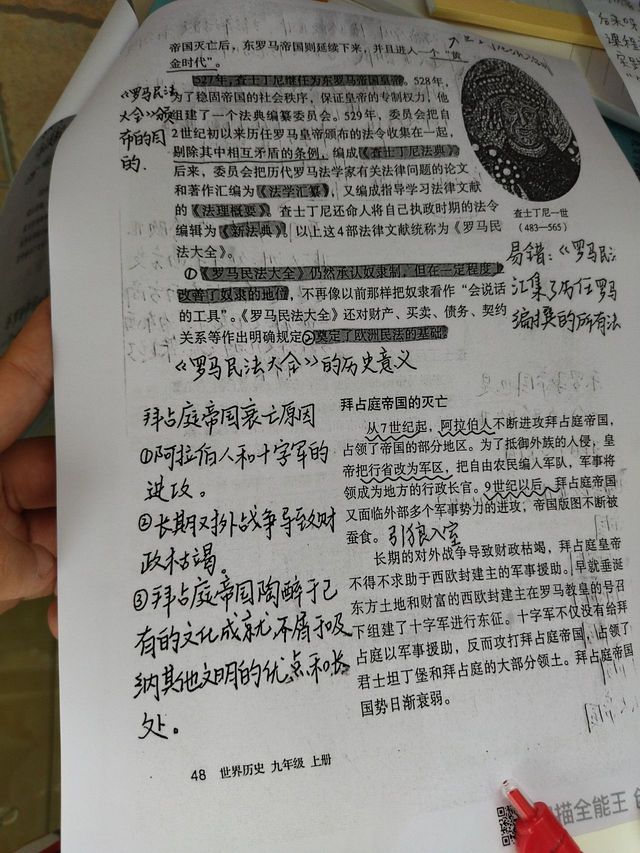 帝国灭亡后，东罗马帝国则延续下来，并且进入一个“黄
金时代”。
527年，查士丁尼继任为东罗马帝国皇帝。528年，
为了稳固帝国的社会秩序，保证皇帝的专制权力，他
组建了一个法典编纂委员会。529年，委员会把自
2世纪初以来历任罗马皇帝颁布的法令收集在一起，
剔除其中相互矛盾的条例，编成《查士丁尼法典》
后来，委员会把历代罗马法学家有关法律问题的论文
和著作汇编为《法学汇纂》，又编成指导学习法律文献
的《法理概要》。查士丁尼还命人将自己执政时期的法令
编辑为《新法典》。以上这4部法律文献统称为《罗马民
法大全》。
①《罗马民法大全》仍然承认奴隶制，但在一定程度上
改善了奴隶的地位，不再像以前那样把奴隶看作“会说话
的工具”。《罗马民法大全》还对财产、买卖、债务、契约
关系等作出明确规定②奠定了欧洲民法的基础。
《罗马民法大全》的历史意义
《罗马民法
大全》颁
布的目
的.
查士丁尼一世
(483—565)
易错：《罗马民法
汇集了历任罗马
编撰的所有法
拜占庭帝国衰亡原因
①阿拉伯人和十字军的
进攻。
②长期对外战争导致财
政枯竭。
③拜占庭帝国陶醉于已
有的文化成就，不屑于吸
纳其他文明的优点和长
处。
拜占庭帝国的灭亡
从7世纪起，阿拉伯人不断进攻拜占庭帝国，
占领了帝国的部分地区。为了抵御外族的入侵，皇
帝把行省改为军区，把自由农民编入军队，军事将
领成为地方的行政长官。9世纪以后，拜占庭帝国
又面临外部多个军事势力的进攻，帝国版图不断被
蚕食。引狼入室
长期的对外战争导致财政枯竭，拜占庭皇帝
不得不求助于西欧封建主的军事援助。早就垂涎
东方土地和财富的西欧封建主在罗马教皇的号召
下组建了十字军进行东征。十字军不仅没有给拜
占庭以军事援助，反而攻打拜占庭帝国，占领了
君士坦丁堡和拜占庭的大部分领土。拜占庭帝国
国势日渐衰弱。
48 世界历史 九年级 上册
描全能王